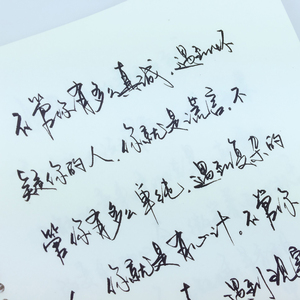 不管你有多么真诚，遇到不
疑你的人，你就是谎言，不
管你有多么单纯，遇到复杂的
你就是有心计，不管你
遇到现实